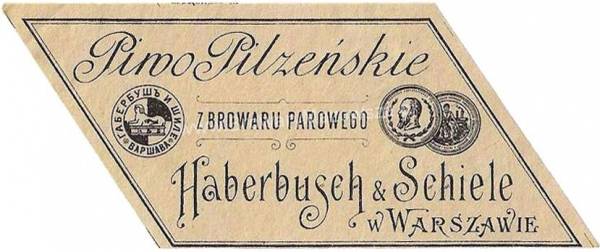 Piwo Pilzeńskie
ГАБЕРБУШЪ И ШИЛЕ
ВАРШАВА
Z BROWARU PAROWEGO
Haberbusch & Schiele
w WARSZAWIE